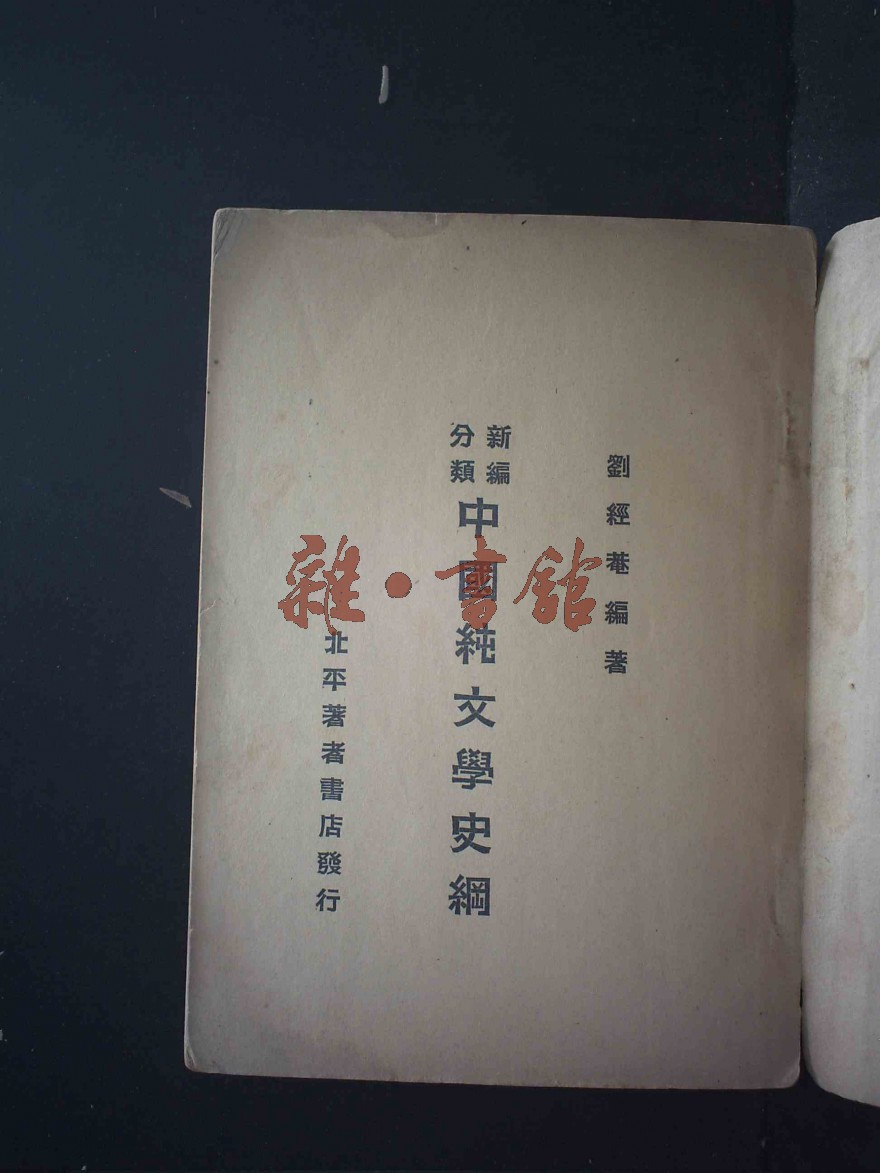 劉經菴編著
新編
分類
中國純文學史綱
北平著者書店發行
雜·書館